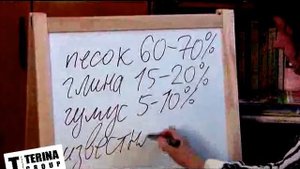 песок 60-70%
глина 15-20%
гумус 5-10%
известн
T TERINA
GROUP